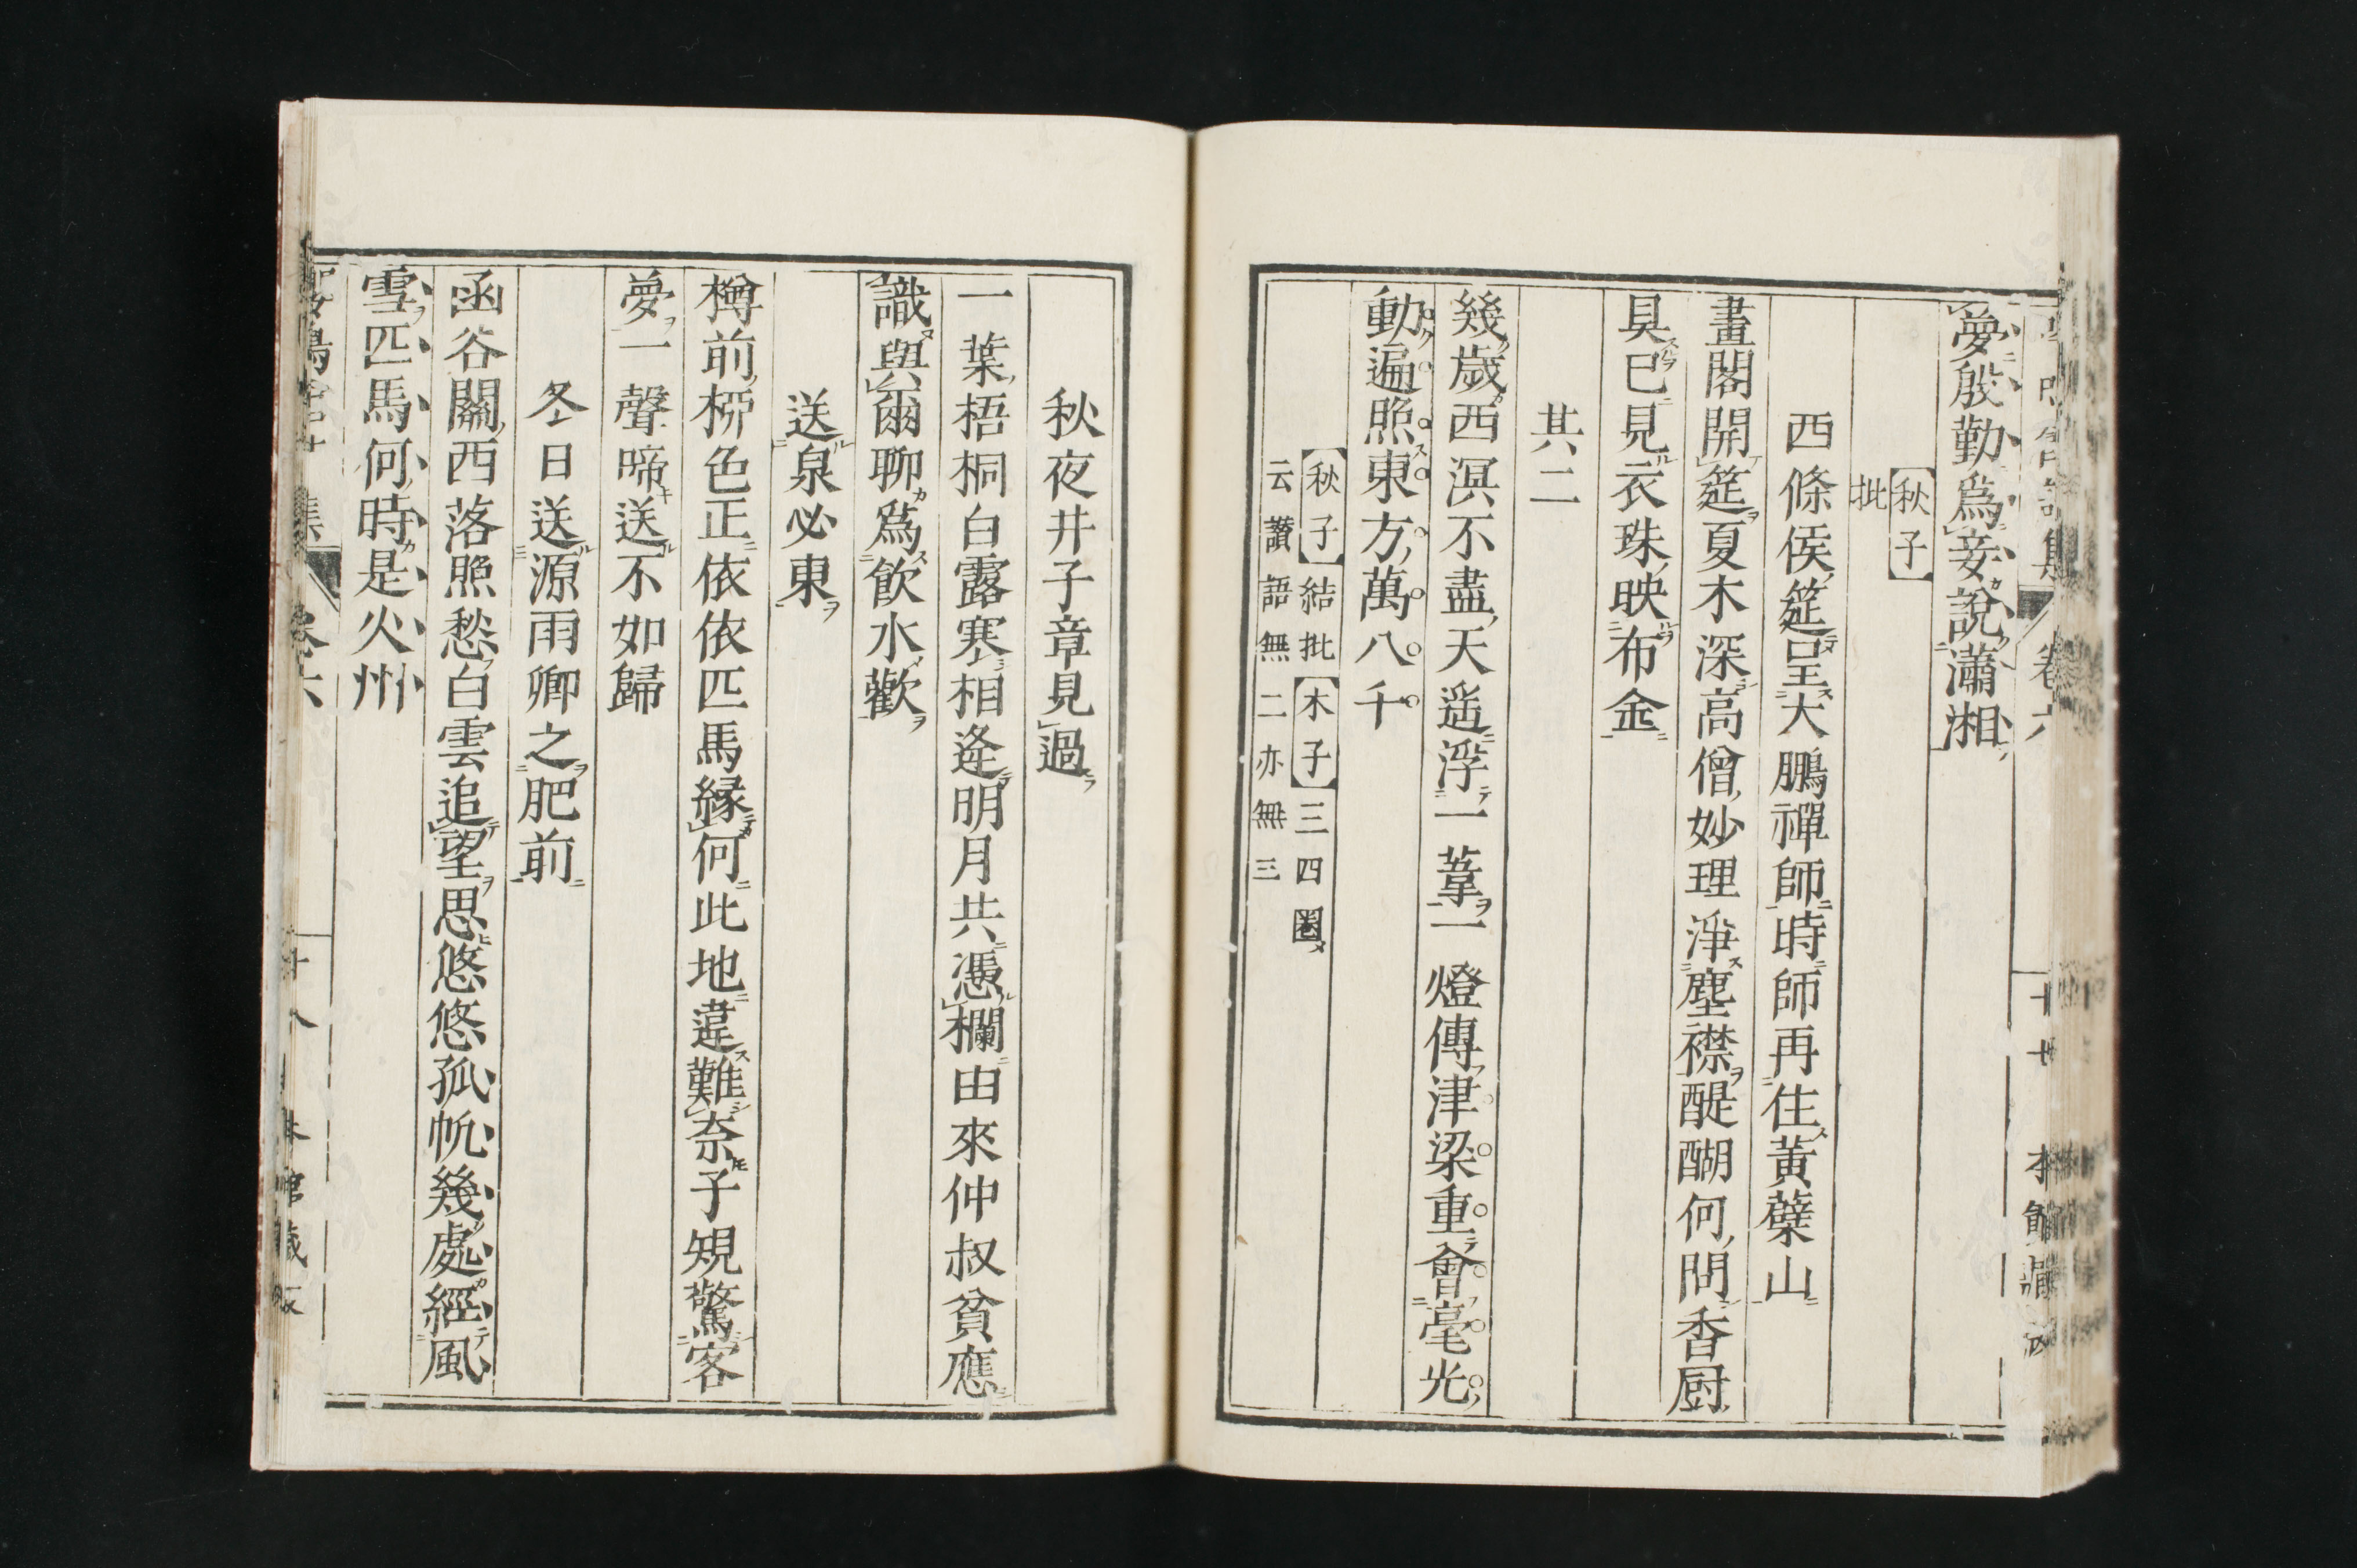 夢殷勤爲妾說瀟湘
【秋子】
批
西條侯筵呈大鵬禪師時師再住黃蘗山
畫閣開筵夏木深高僧妙理淨塵襟醍醐何問香厨
具已見衣珠映布金
其二
幾歲西溟不盡天遥浮一葦一燈傳津梁重會毫光
動遍照東方萬八千
【秋子】結批【木子】三四圈
云讚語無二亦無三
秋夜井子章見過
一葉梧桐白露寒相逢明月共憑欄由來仲叔貧應
識與爾聊爲飮水歡
送泉必東
樽前桺色正依依匹馬緣何此地違難奈子規驚客
夢一聲啼送不如歸
冬日送源雨卿之肥前
函谷關西落照愁白雲追望思悠悠孤帆幾處經風
雪匹馬何時是火州